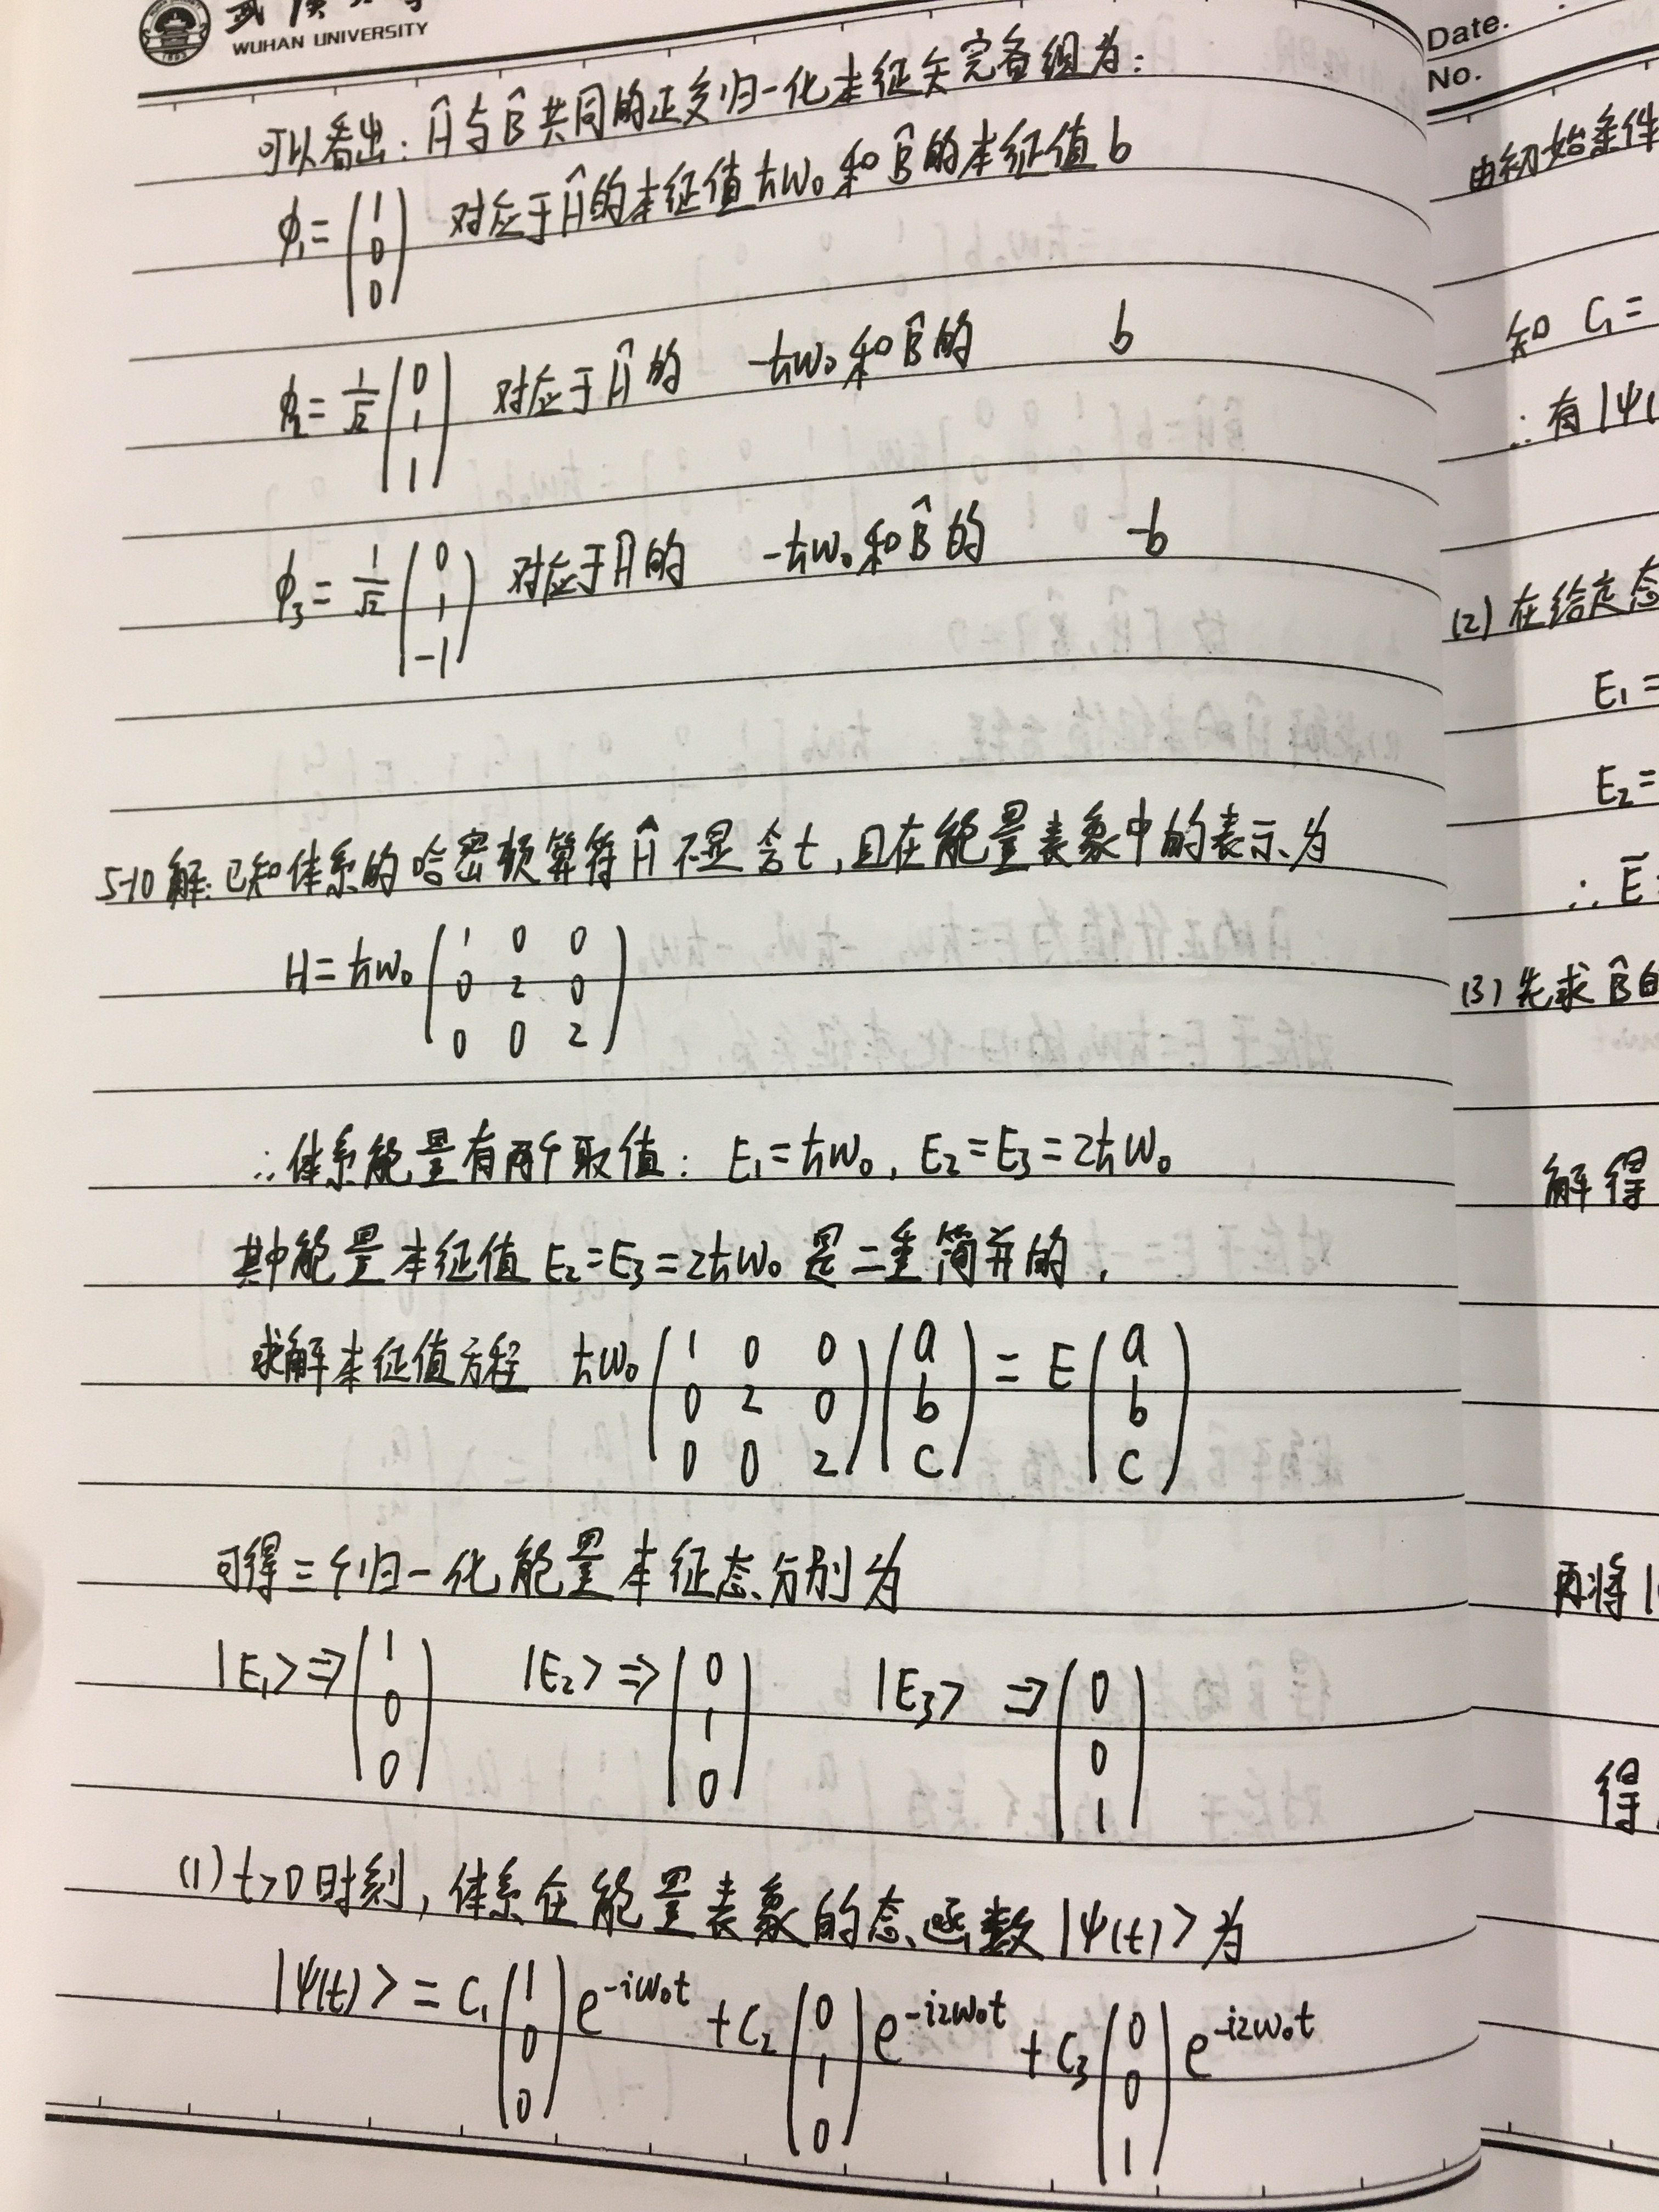 WUHAN UNIVERSITY
可以看出: Ĥ与B̂共同的正交归一化本征矢完备组为:
φ₁= (1 0 0) 对应于Ĥ的本征值ħω₀和B̂的本征值b
φ₂= 1/√2 (0 1 1) 对应于Ĥ的 -ħω₀和B̂的 b
φ₃= 1/√2 (0 1 -1) 对应于Ĥ的 -ħω₀和B̂的 -b
5-10解: 已知体系的哈密顿算符Ĥ不显含t, 且在能量表象中的表示为
H= ħω₀ (1 0 0
0 2 0
0 0 2)
∴体系能量有两个取值: E₁=ħω₀, E₂=E₃=2ħω₀
其中能量本征值 E₂=E₃=2ħω₀ 是二重简并的,
求解本征值方程 ħω₀ (1 0 0; 0 2 0; 0 0 2) (a b c) = E (a b c)
可得三个归一化能量本征态分别为
|E₁> ⇒ (1 0 0) |E₂> ⇒ (0 1 0) |E₃> ⇒ (0 0 1)
(1) t>0时刻, 体系在能量表象的态函数|ψ(t)>为
|ψ(t)> = C₁ (1 0 0) e^{-iω₀t} + C₂ (0 1 0) e^{-i2ω₀t} + C₃ (0 0 1) e^{-i2ω₀t}
Date.
No.
由初始条件
知 C₁=
∴有|ψ(
(2) 在给定态
E₁=
E₂=
∴ Ē
(3) 先求B̂的
解得
再将|
得